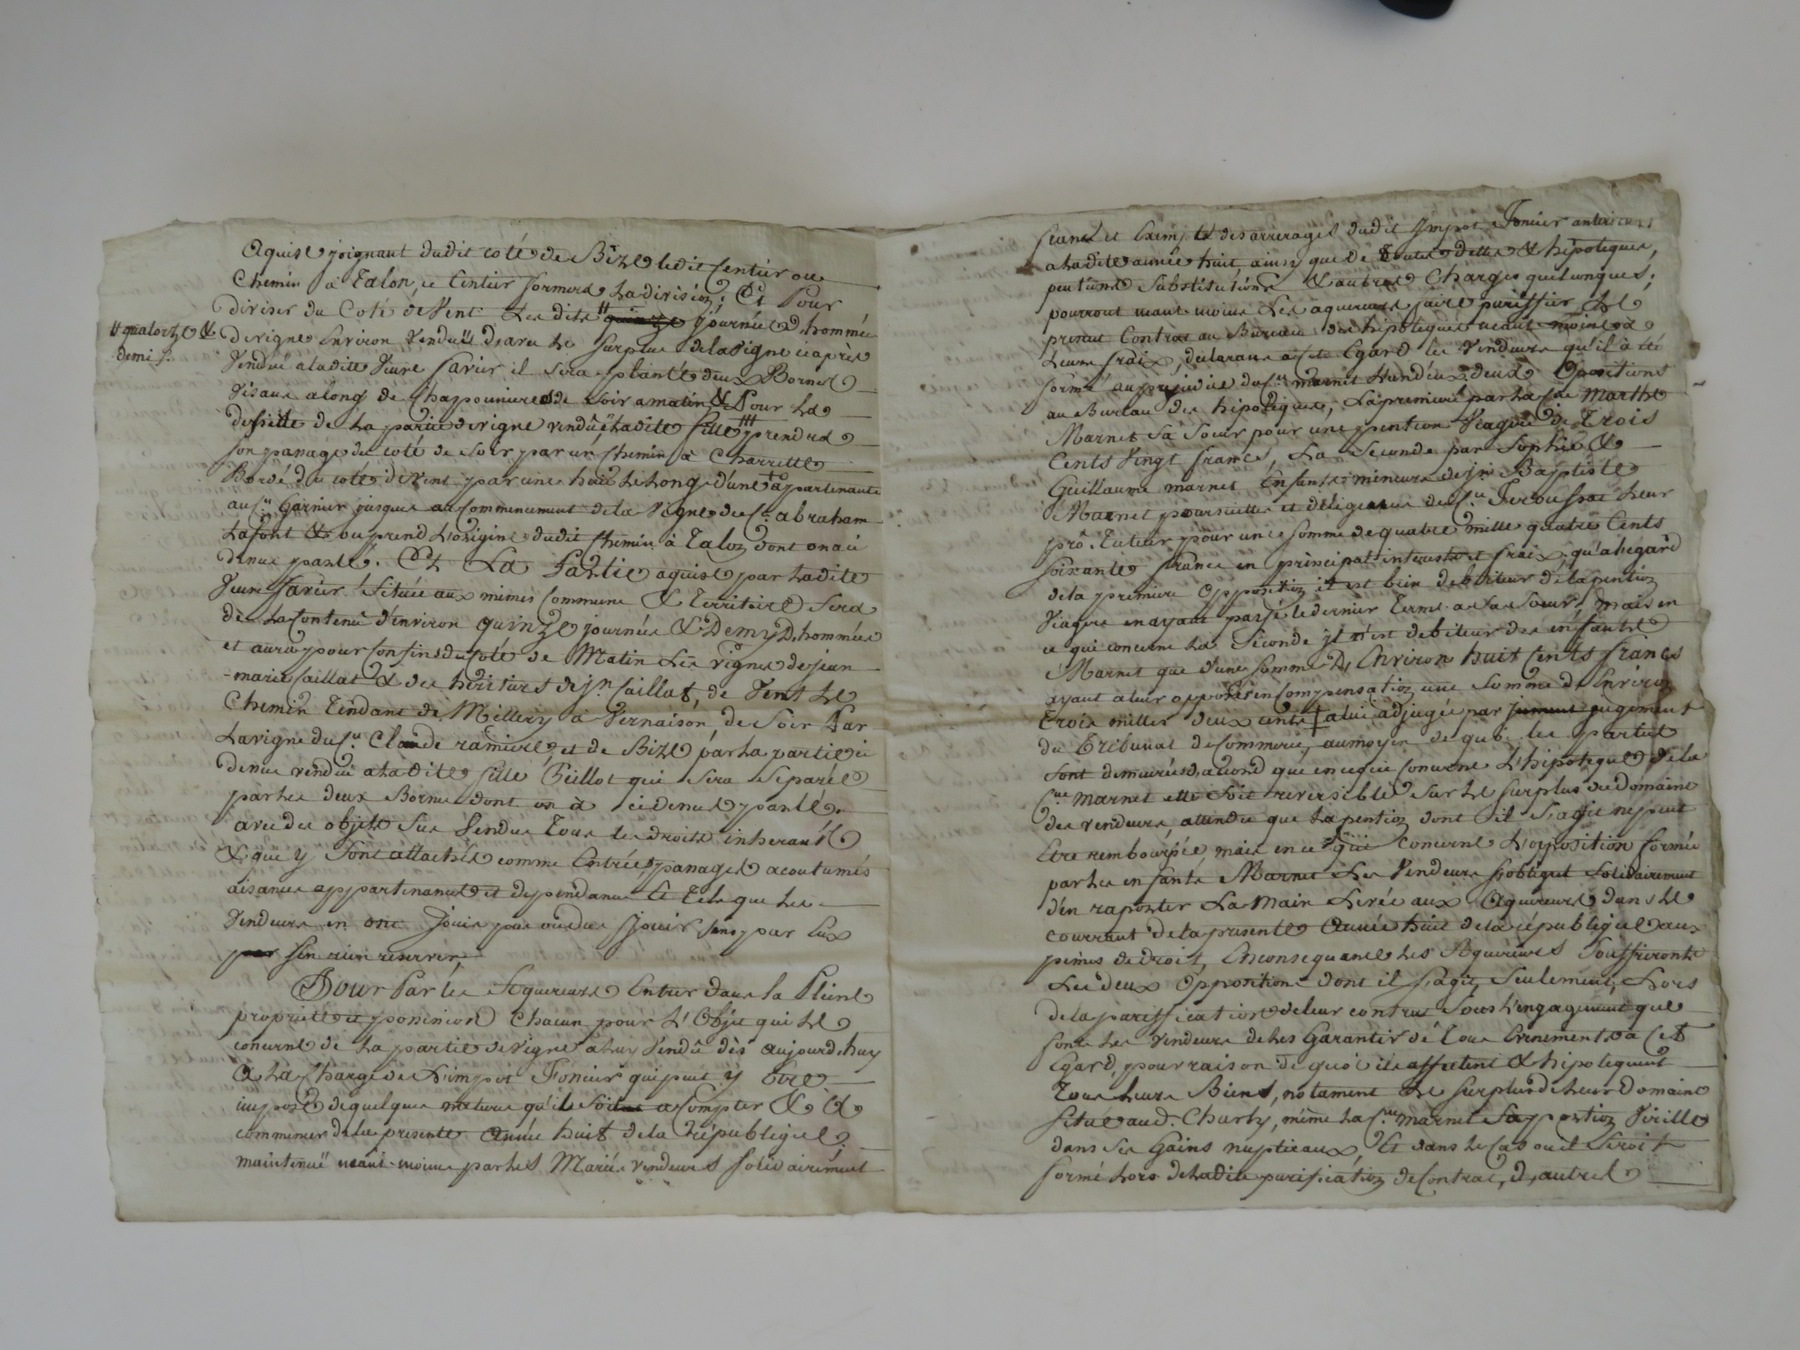 Aquise joignant dudit coté de Bize ledit sentier ou
Chemin a Talon, ce sentier formera la division; Et Pour
diviser du Coté de Vent Les dits " quinze journées d'hommée
" quatorze &
demi /.
de vigne Environ Vendües d'avec le surplus de la Vigne ci après
Vendüe a ladite Veuve Favier il sera planté deux Bornes
visans along de Chaponnieres de Soir a matin & Pour la
desserte de la partie de vigne vendüe, ladite fille prendra
son passage du coté de Soir par un chemin à Charrette
Bordé du coté de Vent par une haie le long d'une appartenante
au Sr. Garnier jusques au commencement de la Vigne du Sr. abraham
Lafont & ou prend L'origine dudit chemin à Talon dont on a ci
devant parlé. Et La Partie aquise par ladite
Veuve Favier Située aux mêmes Commune & Territoire Sera
de La Contenue d'environ quinze journées & Demy D'hommées
et aura pour Confins du Coté de Matin Les vignes de jean
-marie Caillat & des héritiers de jn. Caillat, de Vent le
Chemin Tendant de Millery à Vernaison, de Soir Par
La vigne du Sr. Claude ramiere, et de Bize par La partie ci
devant vendüe a La Dite fille Guillot qui Sera Separée
par Les deux Bornes dont on à ci devant parlé.
avec des objets Sus Vendus Tous les droits inherants
& qui y Sont attachés comme Entrées, passages acoutumés
aisances appartenances et dependances Et Tels que Les
Vendeurs en ont Jouis pou ou dus Jouir Sans par Eux
par s'en rien reserver
Pour Par les Aquereurs Entrer dans la Pleine
propriété et possession Chacun pour L'Objet qui Le
concerne de La partie de Vigne a Luy Vendüe dès aujourd'huy
a La Charge de L'impot Foncier qui peut y Etre
imposé de quelques natures qu'il soit a Compter & a
commencer de La presente année huit de la république;
maintenüe néant-moins par Les Mariés vendeurs Solidairement
francs et Exempts des arrerages dudit Impot Foncier anterieurs
a La dite année huit, ainsi que de Toutes dettes & hipoteques,
pentions Substitutions & autres Charges quelconques;
pourront néant moins Les aquereurs faire purifier Le
present Contrat au Bureau des hipoteques néant moins à
Leurs fraix, déclarans a Cet Egard les Vendeurs qu'il à été
formé au préjudice du Sr. Marnet Vendeur deux Opositions
au Bureau des hipoteques, La premiere par La fne. Marthe
Marnet Sa Soeur pour une pention Viagere de Trois
Cents Vingt francs, La Seconde par Sophie &
Guillaume Marnet Enfants mineurs de jn. Baptiste
Marnet poursuittes et diligences du Sr. Leur
pro-Tuteur pour une somme de quatre mille quatre Cents
soixante francs en principal interets et fraix, qu'a legard
de la premiere Opposition il est bien debiteur de la pention
Viagere en ayant payé le dernier Terme a sa Soeur, mais en
ce qui concerne La Seconde il n'est debiteur des enfants
Marnet que d'une Somme De Environ huit Cents francs
ayant a leur opposer en Compensation une Somme de Environ
trois milles deux cents + a lui adjugée par jugement
du Tribunal de Commerce, aumoyen de quoi les parties
sont demeurées d'accord que en ce qui Concerne L'hipoteque de la
fne. Marnet elle Soit reversible Sur Le surplus du Domaine
des vendeurs, attendu que La pention dont il S'agit ne peut
Etre remboursée, mais en ce qui Concerne L'oposition formée
par Les enfants Marnet Les Vendeurs s'obligent Solidairement
d'en raporter La Main Levée aux Aquereurs dans Le
courrant de La presente année huit de la république aux
peines de droit, En consequance Les Aquereurs Souffriront
Les deux Oppositions dont il S'agit Seulement, Lors
de La purification de leur contrat Sous L'engagement que
font Les Vendeurs de Les Garantir de Tous Evenements a Cet
Egard, pour raison de quoi ils affectent & hipotequent
Tous Leurs Biens, notament Le Surplus de Leur Domaine
Situé aud. Charly, même La fne. Marnet Sa portion Virille
dans Ses Gains nuptieaux, Et dans Le Cas ou il Seroit
formé Lors de Ladite purification de Contrat, d'autres